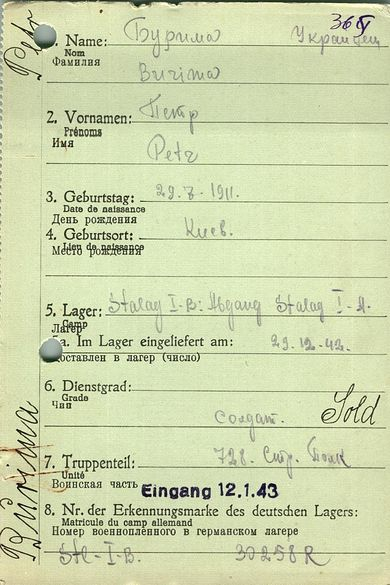 365
1. Name: Бурима Украинец
Nom
Фамилия
Burima
2. Vornamen: Петр
Prénoms
Имя
Petr
3. Geburtstag: 29.7.1911.
Date de naissance
День рождения
4. Geburtsort: Киев.
Lieu de naissance
Место рождения
5. Lager: Stalag I-B: Abgang Stalag I-A.
Camp
Лагер
a. Im Lager eingeliefert am: 29.12.42.
Доставлен в лагер (число)
6. Dienstgrad:
Grade
Чин
Солдат. Sold
7. Truppenteil: 728. Стр. Полк
Unité
Воинская часть Eingang 12.1.43
8. Nr. der Erkennungsmarke des deutschen Lagers:
Matricule du camp allemand
Номер военноплённого в германском лагере
Stl-I-B. 30258R
Burima
Petr